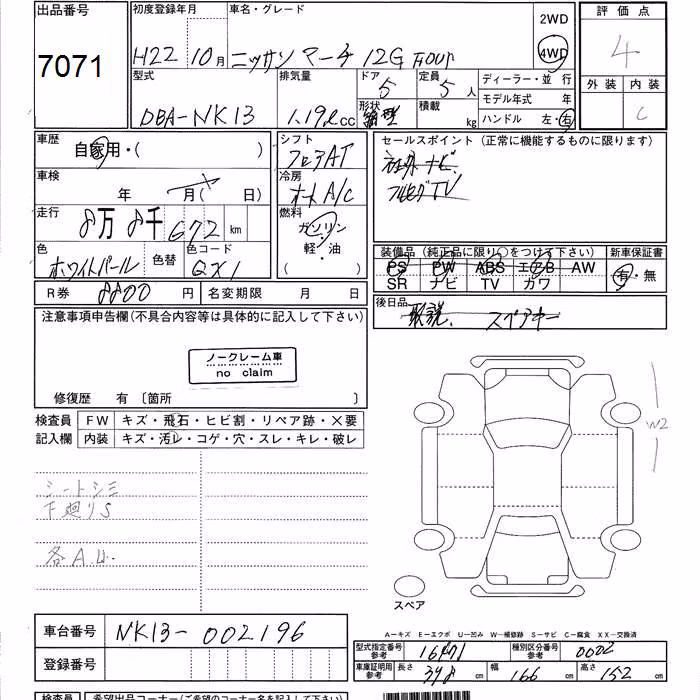 出品番号 初度登録年月 車名・グレード 2WD 評価点
7071 H22 10月 ニッサン マーチ 12G FOUR 4WD 4
型式 排気量 ドア 定員 ディーラー・並行 外装 内装
DBA-NK13 1.19ℓcc 5 5人 モデル年式 年 C
形状 積載 kg ハンドル 左・右
車歴 シフト セールスポイント（正常に機能するものに限ります）
自家用・( ) フロアAT 社外ナビ
車検 冷房 フルセグTV
年 月( 日) オートA/C
走行 燃料
8万8千672km ガソリン
軽・油
( )
色 色替 色コード 装備品（純正品に限り○をつけて下さい） 新車保証書
ホワイトパール QX1 PS PW ABS エアB AW 有・無
SR ナビ TV カワ
R券 8800円 名変期限 月 日 後日品
取説、スペアキー
注意事項申告欄(不具合内容等は具体的に記入して下さい)
ノークレーム車
no claim
修復歴 有〔箇所 〕
検査員 FW キズ・飛石・ヒビ割・リペア跡・×要
記入欄 内装 キズ・汚レ・コゲ・穴・スレ・キレ・破レ
W2
シートシミ
下廻りS
各A.U.
スペア
車台番号 NK13-002196
A－キズ E－エクボ U－凹み W－補修跡 S－サビ C－腐食 XX－交換済
型式指定番号 参考 16471 種別区分番号 参考 0002
登録番号 車庫証明用 参考 長さ 378 幅 166 高さ 152
検査員 希望出品コーナー(ご希望のコーナー名を記入して下さい)